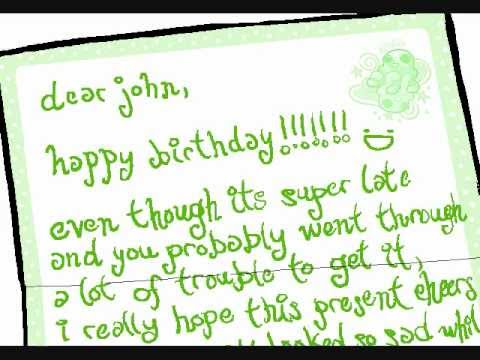 dear john,
happy birthday!!!!!!! :D
even though its super late
and you probably went through
a lot of trouble to get it,
i really hope this present cheers
looked so sad whil